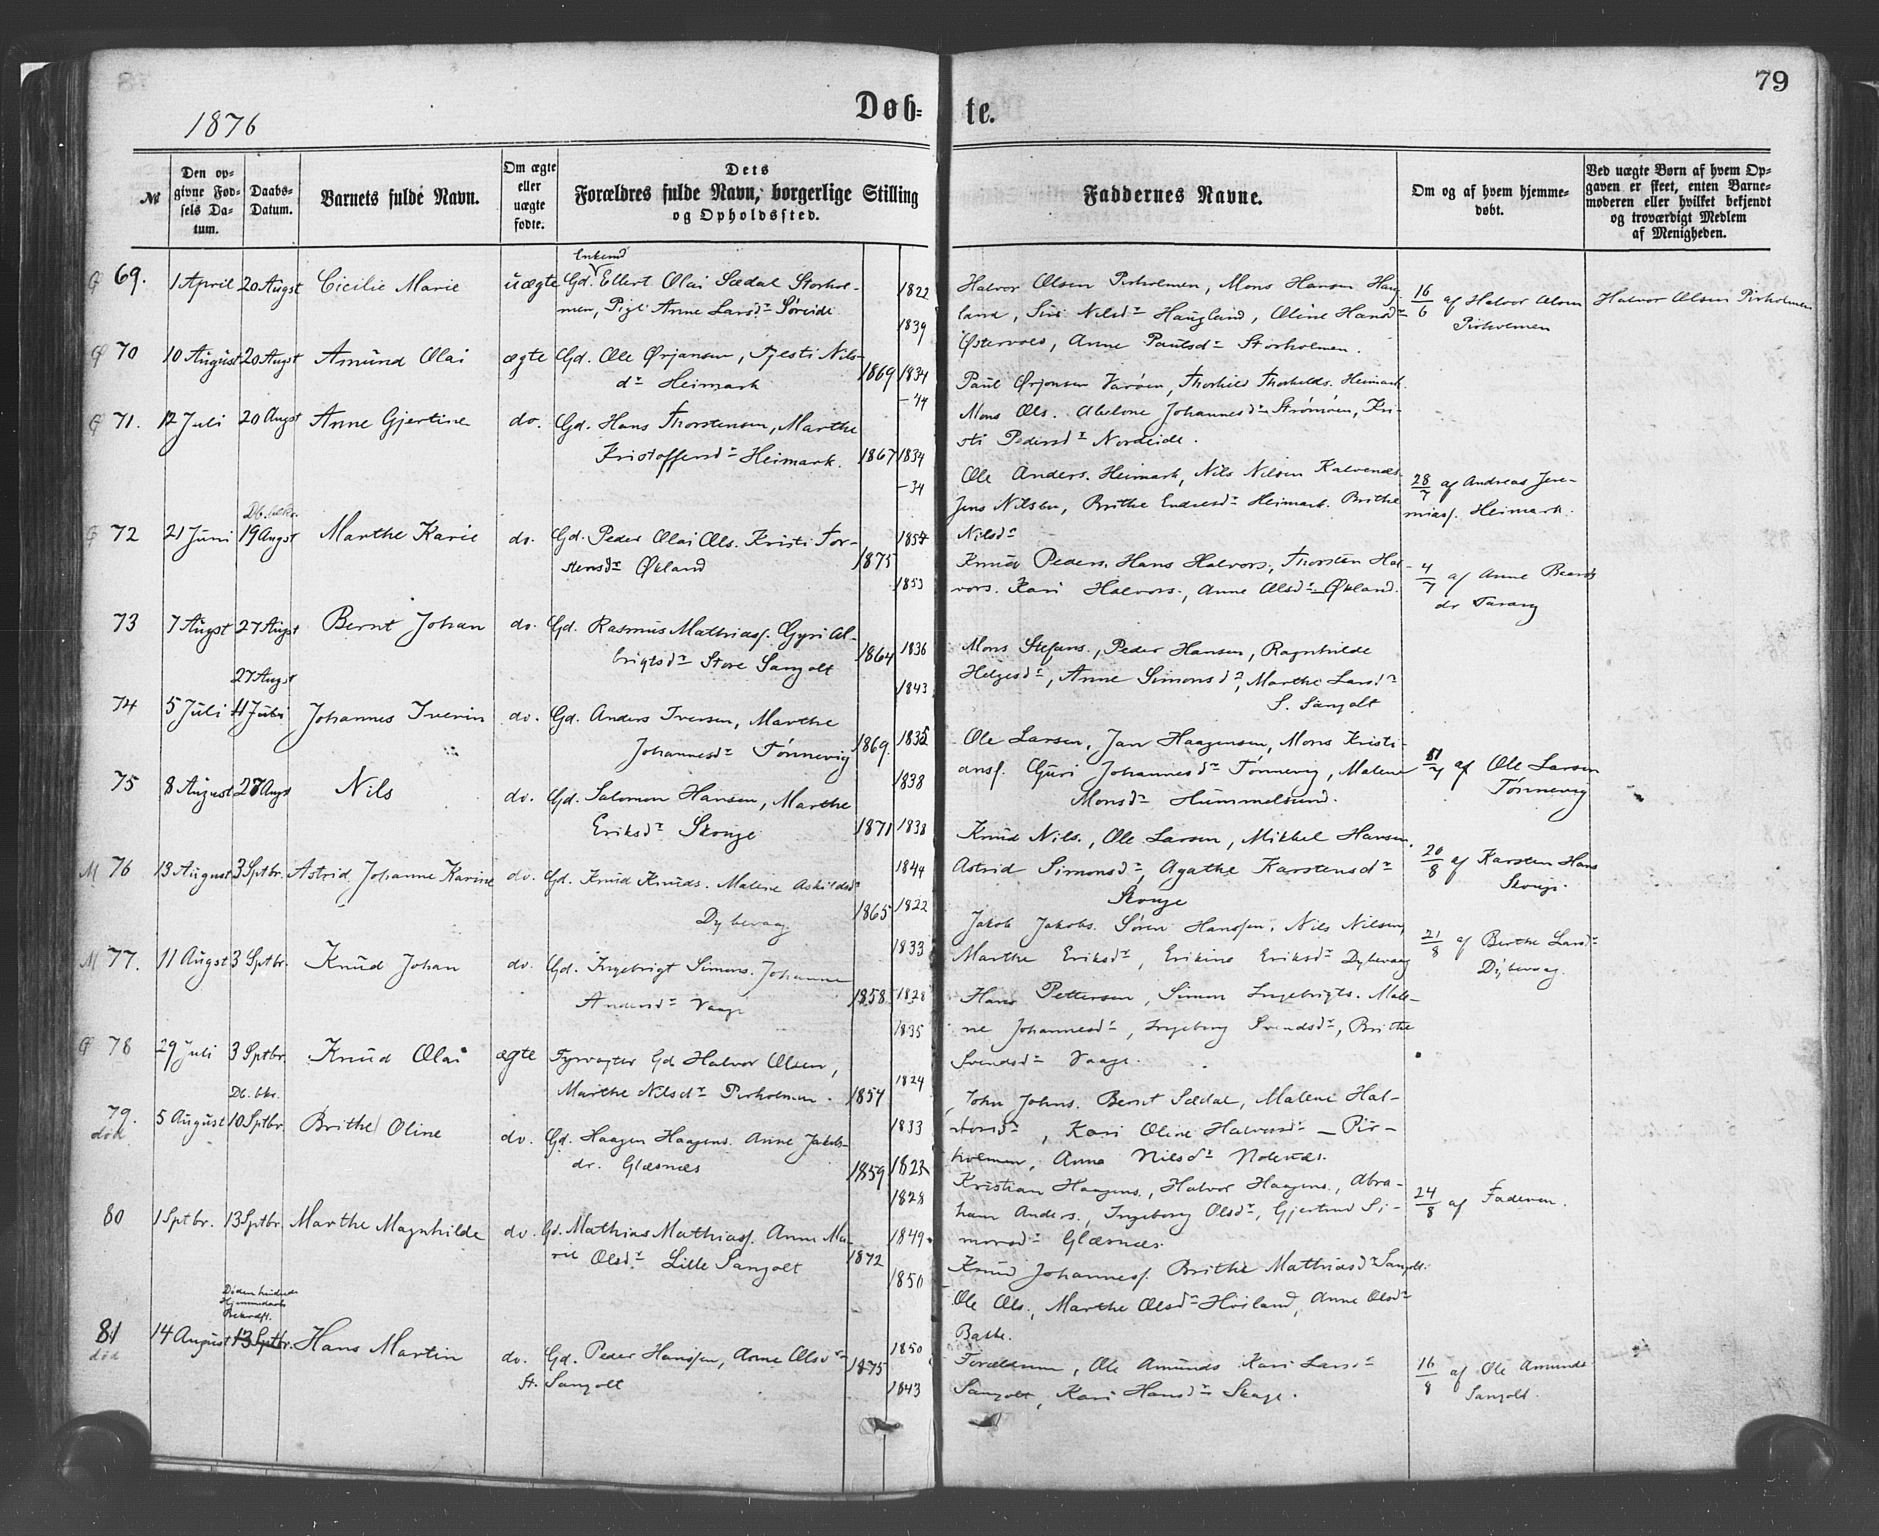 79
1876
Døb-
te.
№
Den op-
givne Fød-
sels Da-
tum.
Daabs-
Datum.
Barnets fulde Navn.
Om ægte
eller
uægte
fødte.
Dets
Forældres fulde Navn, borgerlige Stilling
og Opholdssted.
Faddernes Navne.
Om og af hvem hjemme-
døbt.
Ved uægte Børn af hvem Op-
gaven er skeet, enten Barne-
moderen eller hvilket bekjendt
og troværdigt Medlem
af Menigheden.
69. 1 April 20 Augst Cicilie Marie uægte
Enkemd
Gd. Ellert Olai Sædal Storhol-
men, Pige Anne Larsdr Søreide
1822
1839
Halvor Olsen Pirholmen, Mons Hansen Haug
land, Siri Nilsdr Haugland, Oline Hansdr
Østervold, Anne Paulsdr Storholmen.
16/6 af Halvor Olsen
Pirholmen
Halvor Olsen Pirholmen
70 10 August 20 Augst Amund Olai ægte
Gd. Ole Ørjansen, Kjesti Nils-
dr Heimark
1869
1834
-44
Paul Ørjansen Varøen, Thorkild Thorkilds. Heimark.
Mons Ols. Abelone Johannesdr Strømøen, Kri-
sti Pedersdr Nordeide.
71. 12 Juli 20 Augst Anne Gjertine do.
Gd. Hans Thorstensen, Marthe
Kristoffersdr Heimark.
1867
1834
-34
Ole Anders. Heimark, Nils Nilsen Kalvenæs
Jens Nilsen, Brithe Endresdr Heimark. Brithe
Nilsdr
28/7 af Andreas Jere-
miass. Heimark.
72 21 Juni 19 Augst Marthe Karie do.
Gd. Peder Olai Ols. Kristi Tor-
stensdr Økland
1875
1854
1853
Knud Peders. Hans Halvors., Thorsten Hal-
vors. Kari Halvors., Anne Olsdr Økland.
4/7 af Anne Baards
dr Tarang
73 7 Augst 27 Augst Bernt Johan do.
Gd. Rasmus Mathiass. Gyri Al-
brigtsdr Store Sangolt
1864
1836
1843
Mons Stefans., Peder Hansen, Ragnhilde
Helgesdr, Anne Simonsdr, Marthe Larsdr
S. Sangolt
27 Augst
74 5 Juli 11 Juli Johannes Iverin do.
Gd. Anders Iversen, Marthe
Johannesdr Tønnevig
1869.
1835
1838
Ole Larsen, Jan Haagensen, Mons Kristi-
anss. Guri Johannesdr Tønnevig, Malene
Monsdr Hummelsund.
af Ole Larsen
Tønnevig
75 8 August 27 Augst Nils do.
Gd. Salomon Hansen, Marthe
Eriksdr Skouge
1871
1838
1844
Knud Nils., Ole Larsen, Mikkel Hansen.
Astrid Simonsdr, Agathe Karstensdr
Skouge
20/8 af Karsten Hans
Skouge.
M 76 13 August 3 Sptbr. Astrid Johanne Karine do.
Gd. Knud Knuds. Malene Askildsdr
Dybevaag
1865
1822
1833
Jakob Jakobs. Søren Hanssen, Nils Nilsen,
Marthe Eriksdr, Erikine Eriksdr Dybevaag
21/8 af Berthe Larsdr
Dybevaag.
M 77. 11 Augst 3 Sptbr. Knud Johan do.
Gd. Ingebrigt Simons. Johanne
Andersdr Vaage
1858
1828
1835
Hans Pettersen, Simon Ingebrigts. Male-
ne Johannesdr, Ingeborg Svendsdr, Brithe
Svendsdr Vaage.
78 29 Juli 3 Sptbr. Knud Olai ægte
Fyrvogter Gd Halvor Olsen,
Marthe Nilsdr Pirholmen.
1854
1824
1833
John Johns. Bernt Sædal, Malene Hal-
vorsdr, Kari Oline Halvorsdr Pir-
holmen, Anna Nilsdr
79. død 5 August 10 Sptbr. Brithe Oline do.
Gd. Haagen Haagens. Anne Jakobs-
dr. Glæsnæs
1859
1823
1828
Kristian Haagens., Halvor Haagens., Abra-
ham Anders., Ingeborg Olsdr, Gjertrud Si-
monsdr Glæsnæs.
24/8 af Faderen.
80 1 Sptbr. 13 Sptbr. Marthe Magnhilde do.
Gd. Mathias Mathiass. Anne Ma-
rie Olsdr. Lille Sangolt
1872
1849
1850
Knud Johanness. Brithe Mathiasdr Sangolt.
Ole Ols., Marthe Olsdr Høiland, Anne Olsdr
Bakke.
Døden hindrede
Hjemmedaabs
Bekræft.
81 død 14 August 13 Sptbr. Hans Martin do.
Gd. Peder Hanssen, Anne Olsdr
St. Sangolt
1875
1850
1843
Forældrene, Ole Amunds Kari Larsdr
Sangolt, Kari Hansdr Skage.
16/8 af Ole Amunds
Sangolt.